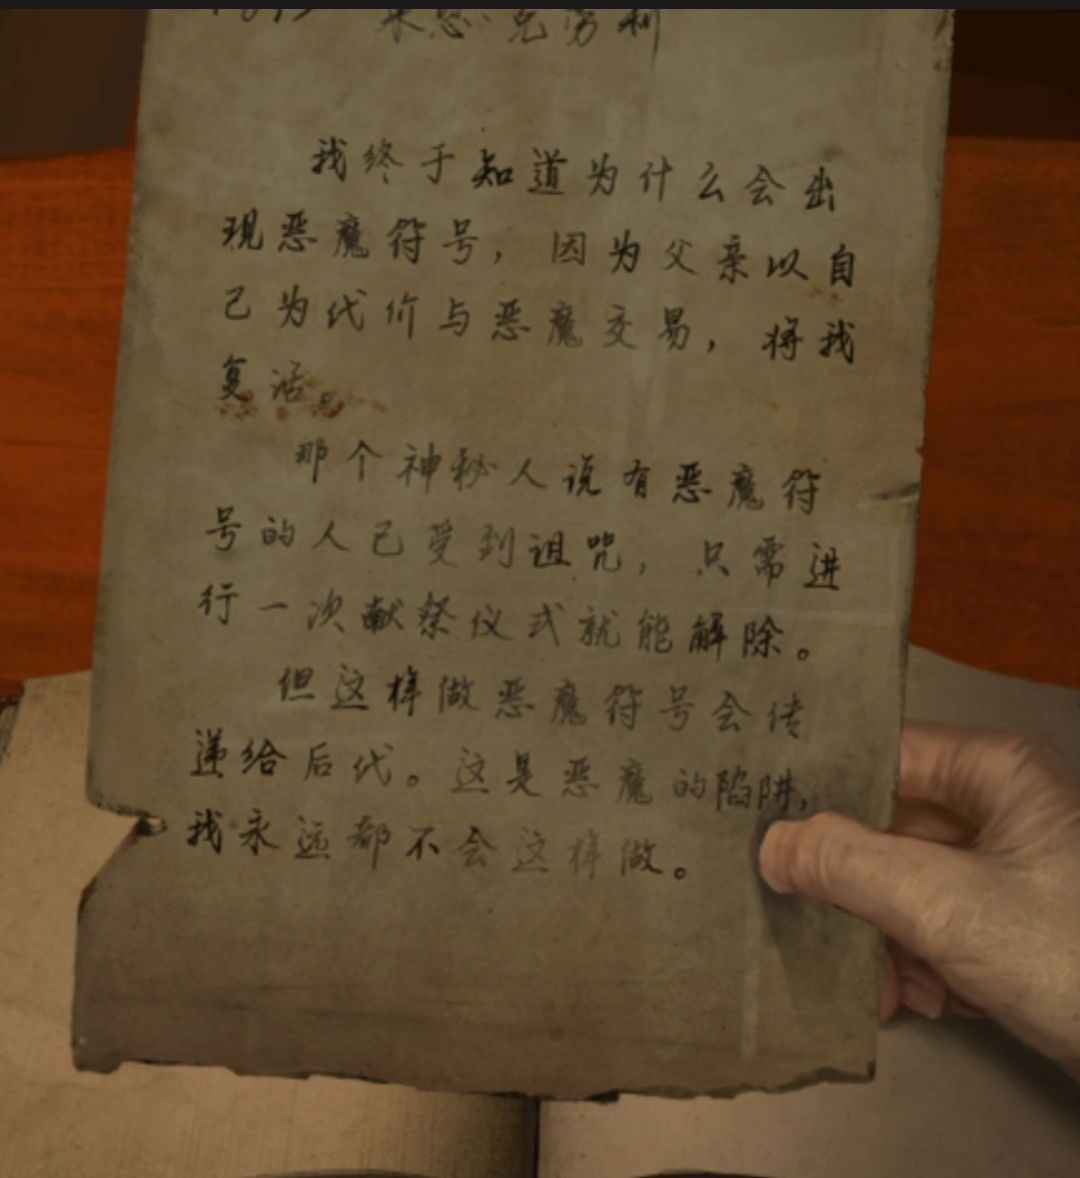 克劳利
我终于知道为什么会出
现恶魔符号，因为父亲以自
己为代价与恶魔交易，将我
复活。
那个神秘人说有恶魔符
号的人已受到诅咒，只需进
行一次献祭仪式就能解除。
但这样做恶魔符号会传
递给后代。这是恶魔的陷阱，
我永远都不会这样做。